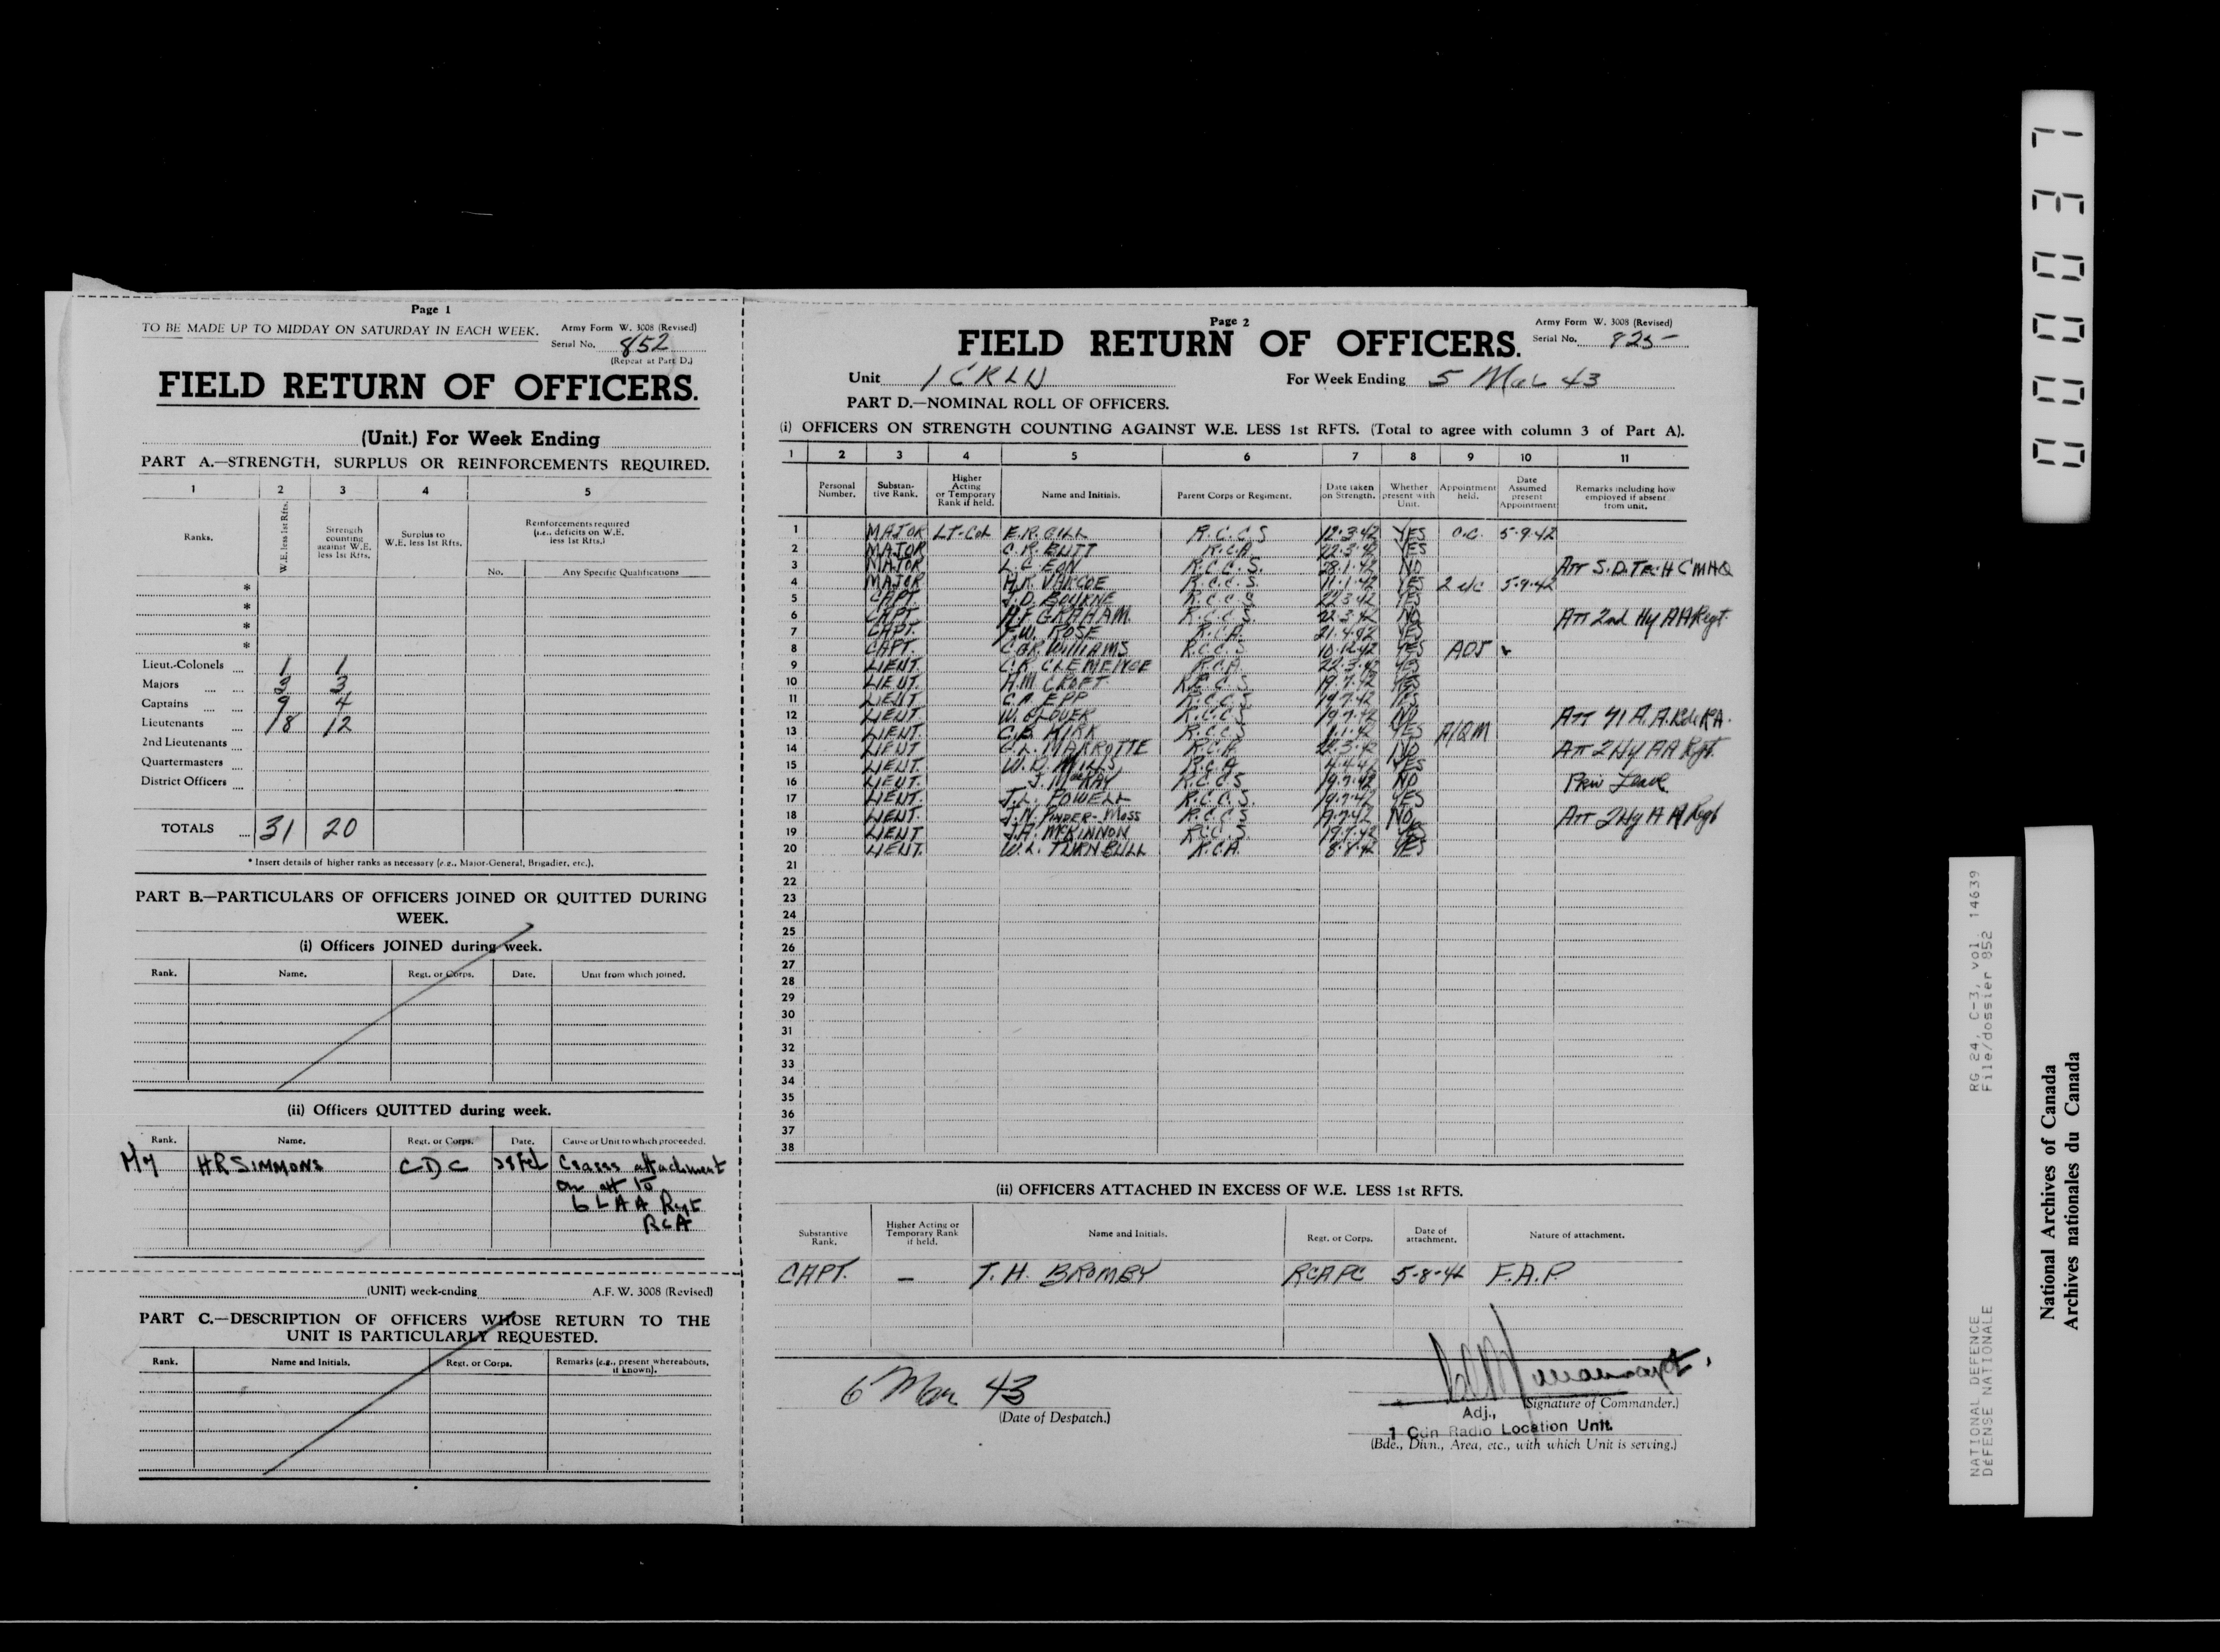 Page 1
TO BE MADE UP TO MIDDAY ON SATURDAY IN EACH WEEK.
Army Form W. 3008 (Revised)
Serial No. 852
(Repeat at Part D.)
FIELD RETURN OF OFFICERS.
(Unit.) For Week Ending
PART A.—STRENGTH, SURPLUS OR REINFORCEMENTS REQUIRED.
1 2 3 4 5
Ranks. W.E. less 1st Rfts. Strength counting against W.E. less 1st Rfts. Surplus to W.E. less 1st Rfts. Reinforcements required (i.e., deficits on W.E. less 1st Rfts.)
No. Any Specific Qualifications
*
*
*
*
Lieut.-Colonels 1 1
Majors 3 3
Captains 9 4
Lieutenants 18 12
2nd Lieutenants
Quartermasters
District Officers
TOTALS 31 20
* Insert details of higher ranks as necessary (e.g., Major-General, Brigadier, etc.).
PART B.—PARTICULARS OF OFFICERS JOINED OR QUITTED DURING
WEEK.
(i) Officers JOINED during week.
Rank. Name. Regt. or Corps. Date. Unit from which joined.
(ii) Officers QUITTED during week.
Rank. Name. Regt. or Corps. Date. Cause or Unit to which proceeded.
HR SIMMONS CDC 28 Feb Ceases attachment
on att to
6 LAA Regt
RCA
(UNIT) week-ending A.F. W. 3008 (Revised)
PART C.—DESCRIPTION OF OFFICERS WHOSE RETURN TO THE
UNIT IS PARTICULARLY REQUESTED.
Rank. Name and Initials. Regt. or Corps. Remarks (e.g., present whereabouts, if known).
Page 2
Army Form W. 3008 (Revised)
Serial No. 825
FIELD RETURN OF OFFICERS.
Unit 1 CRLU For Week Ending 5 Mar 43
PART D.—NOMINAL ROLL OF OFFICERS.
(i) OFFICERS ON STRENGTH COUNTING AGAINST W.E. LESS 1st RFTS. (Total to agree with column 3 of Part A).
1 2 3 4 5 6 7 8 9 10 11
Personal Number. Substantive Rank. Higher Acting or Temporary Rank if held. Name and Initials. Parent Corps or Regiment. Date taken on Strength. Whether present with Unit. Appointment held. Date Assumed present Appointment Remarks including how employed if absent from unit.
1 MAJOR LT-COL E.R. GILL R.C.C.S 12.3.42 YES O.C. 5.9.42
2 MAJOR R.C.A. 22.3.42 YES
3 MAJOR L.C. EON R.C.C.S. 28.1.42 NO ATT S.D. TECH CMHQ
4 MAJOR H.R. VARCOE R.C.C.S. 11.1.42 YES 2 i/c 5.9.42
5 CAPT. J.D. BOURNE R.C.C.S 22.3.42 YES
6 CAPT. H.F. GRAHAM R.C.C.S. 22.3.42 NO ATT 2nd Hy AA Regt.
7 CAPT. F.W. ROSE R.C.A. 21.4.42 YES
8 CAPT. WILLIAMS R.C.C.S. 10.12.42 YES ADJ
9 LIEUT. C.R. CLEMENCE R.C.A. 22.3.42 YES
10 LIEUT. H.M. CROFT R.C.C.S. 19.7.42 YES
11 LIEUT. EPP R.C.C.S. 19.7.42 YES
12 LIEUT. W. GLOVER R.C.C.S. 19.7.42 NO ATT 71 A.A. Bde RA.
13 LIEUT. KIRK R.C.C.S 1.1.42 YES A/QM
14 LIEUT MARROTTE R.C.A. 22.3.42 NO ATT 2 Hy AA Rgt.
15 LIEUT. W.D. MILLS R.C.A YES
16 LIEUT. J. MacKAY R.C.C.S 19.7.42 NO Priv Leave
17 LIEUT. J.L. POWELL R.C.C.S. 19.7.42 YES
18 LIEUT. J.N. PINDER-MOSS R.C.C.S NO ATT 2 Hy AA Regt
19 LIEUT J.A. McKINNON R.C.C.S. 19.7.42 YES
20 LIEUT. W.L. TURNBULL R.C.A. 8.8.42 YES
21
22
23
24
25
26
27
28
29
30
31
32
33
34
35
36
37
38
(ii) OFFICERS ATTACHED IN EXCESS OF W.E. LESS 1st RFTS.
Substantive Rank. Higher Acting or Temporary Rank if held. Name and Initials. Regt. or Corps. Date of attachment. Nature of attachment.
CAPT. — T.H. BROMBY RCAPC 5-8-42 F.A.P.
6 Mar 43
(Date of Despatch.)
(Signature of Commander.)
Adj.,
1 Cdn Radio Location Unit.
(Bde., Divn., Area, etc., with which Unit is serving.)
000037
RG 24, C-3, vol. 14639
File/dossier 852
NATIONAL DEFENCE
DÉFENSE NATIONALE
National Archives of Canada
Archives nationales du Canada